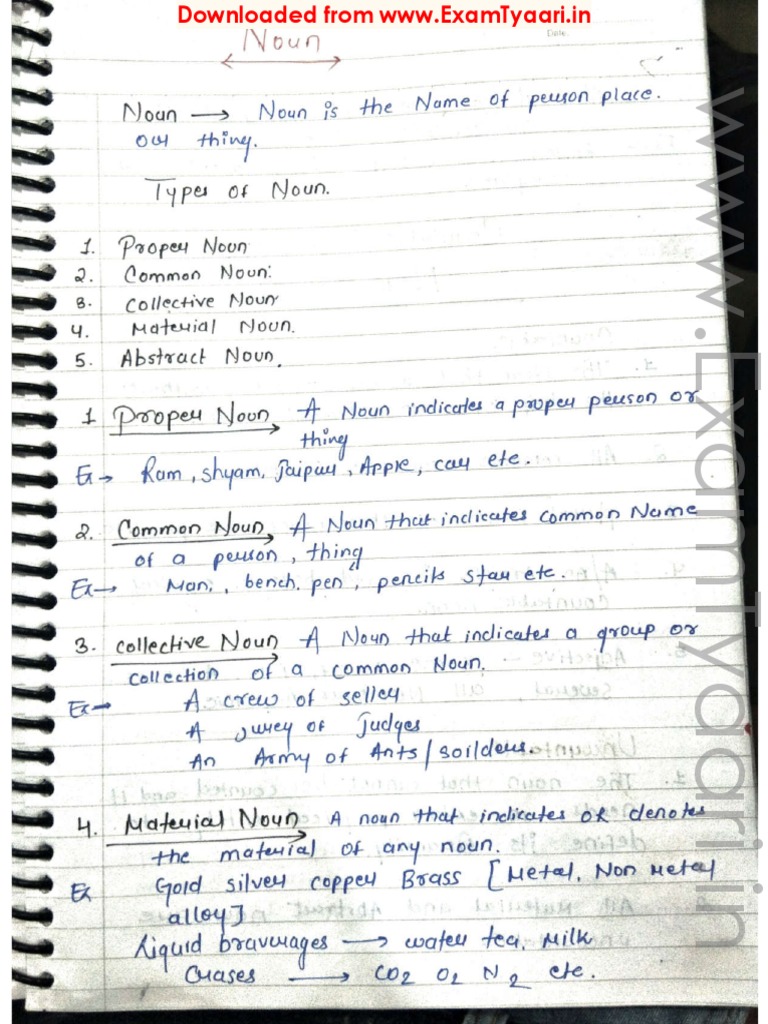 Downloaded from www.ExamTyaari.in
Noun
Date.
Noun → Noun is the Name of person place.
or thing.
Types of Noun.
1. Proper Noun
2. Common Noun.
3. Collective Noun
4. Material Noun.
5. Abstract Noun.
1 Proper Noun A Noun indicates a proper person or
thing
Ex → Ram, shyam, Jaipur, Apple, car etc.
2. Common Noun A Noun that indicates common Name
of a person, thing
Ex → Man, bench. pen, pencils star etc.
3. collective Noun A Noun that indicates a group or
collection of a common Noun.
Ex → A crew of selley
A jurey of Judges
An Army of Ants / soilders.
4. Material Noun A noun that indicates or denotes
the material of any noun.
Ex Gold silver copper Brass [Metal. Non Metal
alloy]
Liquid braverages → water tea, Milk
Gases → CO2 O2 N2 etc.
www.ExamTyaari.in